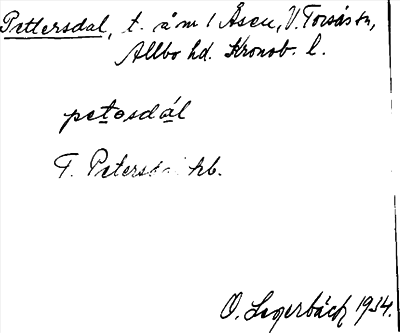 Pettersdal, t. å m 1 Åsen, V. Torsås sn,
Allbo hd. Kronob. l.
petesdál
F. Petersdal kb.
O. Lagerbäck 1934.